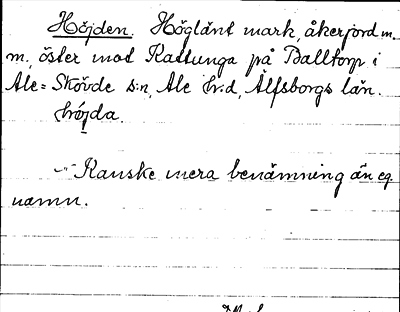 Höjden. Höglänt mark, åkerjord m.
m. öster mot Kattunga på Balltorp i
Ale-Skövde s:n, Ale h:d, Älfsborgs län.
höjda.
Kanske mera benämning än eg.
namn.